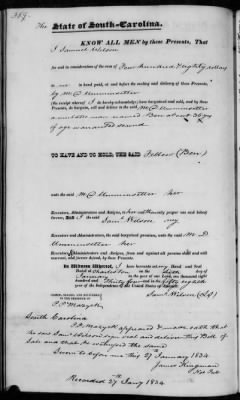 The State of South-Carolina.
KNOW ALL MEN by these Presents, That
I Samuel Wilson
for and in consideration of the sum of Four hundred & eighty dollars
to me in hand paid, at and before the sealing and delivery of these Presents,
by M D
(the receipt whereof I do hereby acknowledge) have bargained and sold, and by these
Presents, do bargain, sell and deliver to the said M D
a mulatto man named Ben about 36 yrs
of age warranted sound
TO HAVE AND TO HOLD, THE SAID Fellow (Ben)
unto the said M D her
Executors, Administrators and Assigns, to her and their only proper use and behoof
forever. And I the said Saml Wilson my
Executors and Administrators, the said bargained premises, unto the said M D
her
Executors, Administrators and Assigns, from and against all persons shall and will
warrant, and forever defend, by these Presents.
In Witness Whereof, I have hereunto set my Hand and Seal
Dated at Charleston on the day of
January in the year of our Lord, one thousand eight
hundred and Thirty four and in the fifty eighth
year of the Independence of the United States of America
SIGNED, SEALED, AND DELIVERED
IN THE PRESENCE OF
Saml Wilson (LS)
South Carolina
appeared & made oath that
he saw Saml Wilson sign seal and deliver this Bill of
Sale and that he witnessed the same
Sworn to before me this 27 January 1834
James Kingman
Not Pub
Recorded 27 Jany 1834